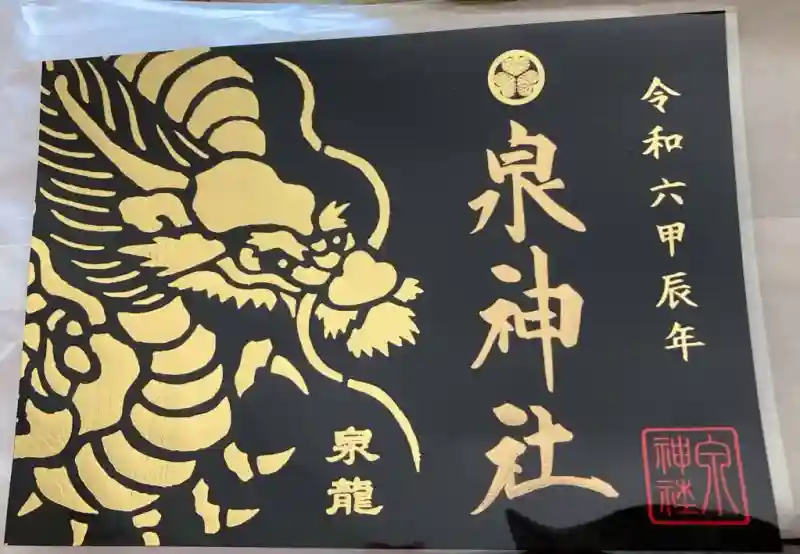 令和六甲辰年
泉神社
泉龍
泉神社